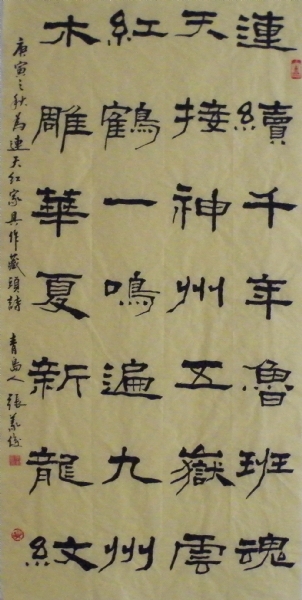 連續千年魯班魂
天接神州五嶽雲
紅鶴一鳴遍九州
木雕華夏新龍紋
庚寅之秋為連天红家具作藏頭詩 青島人 張